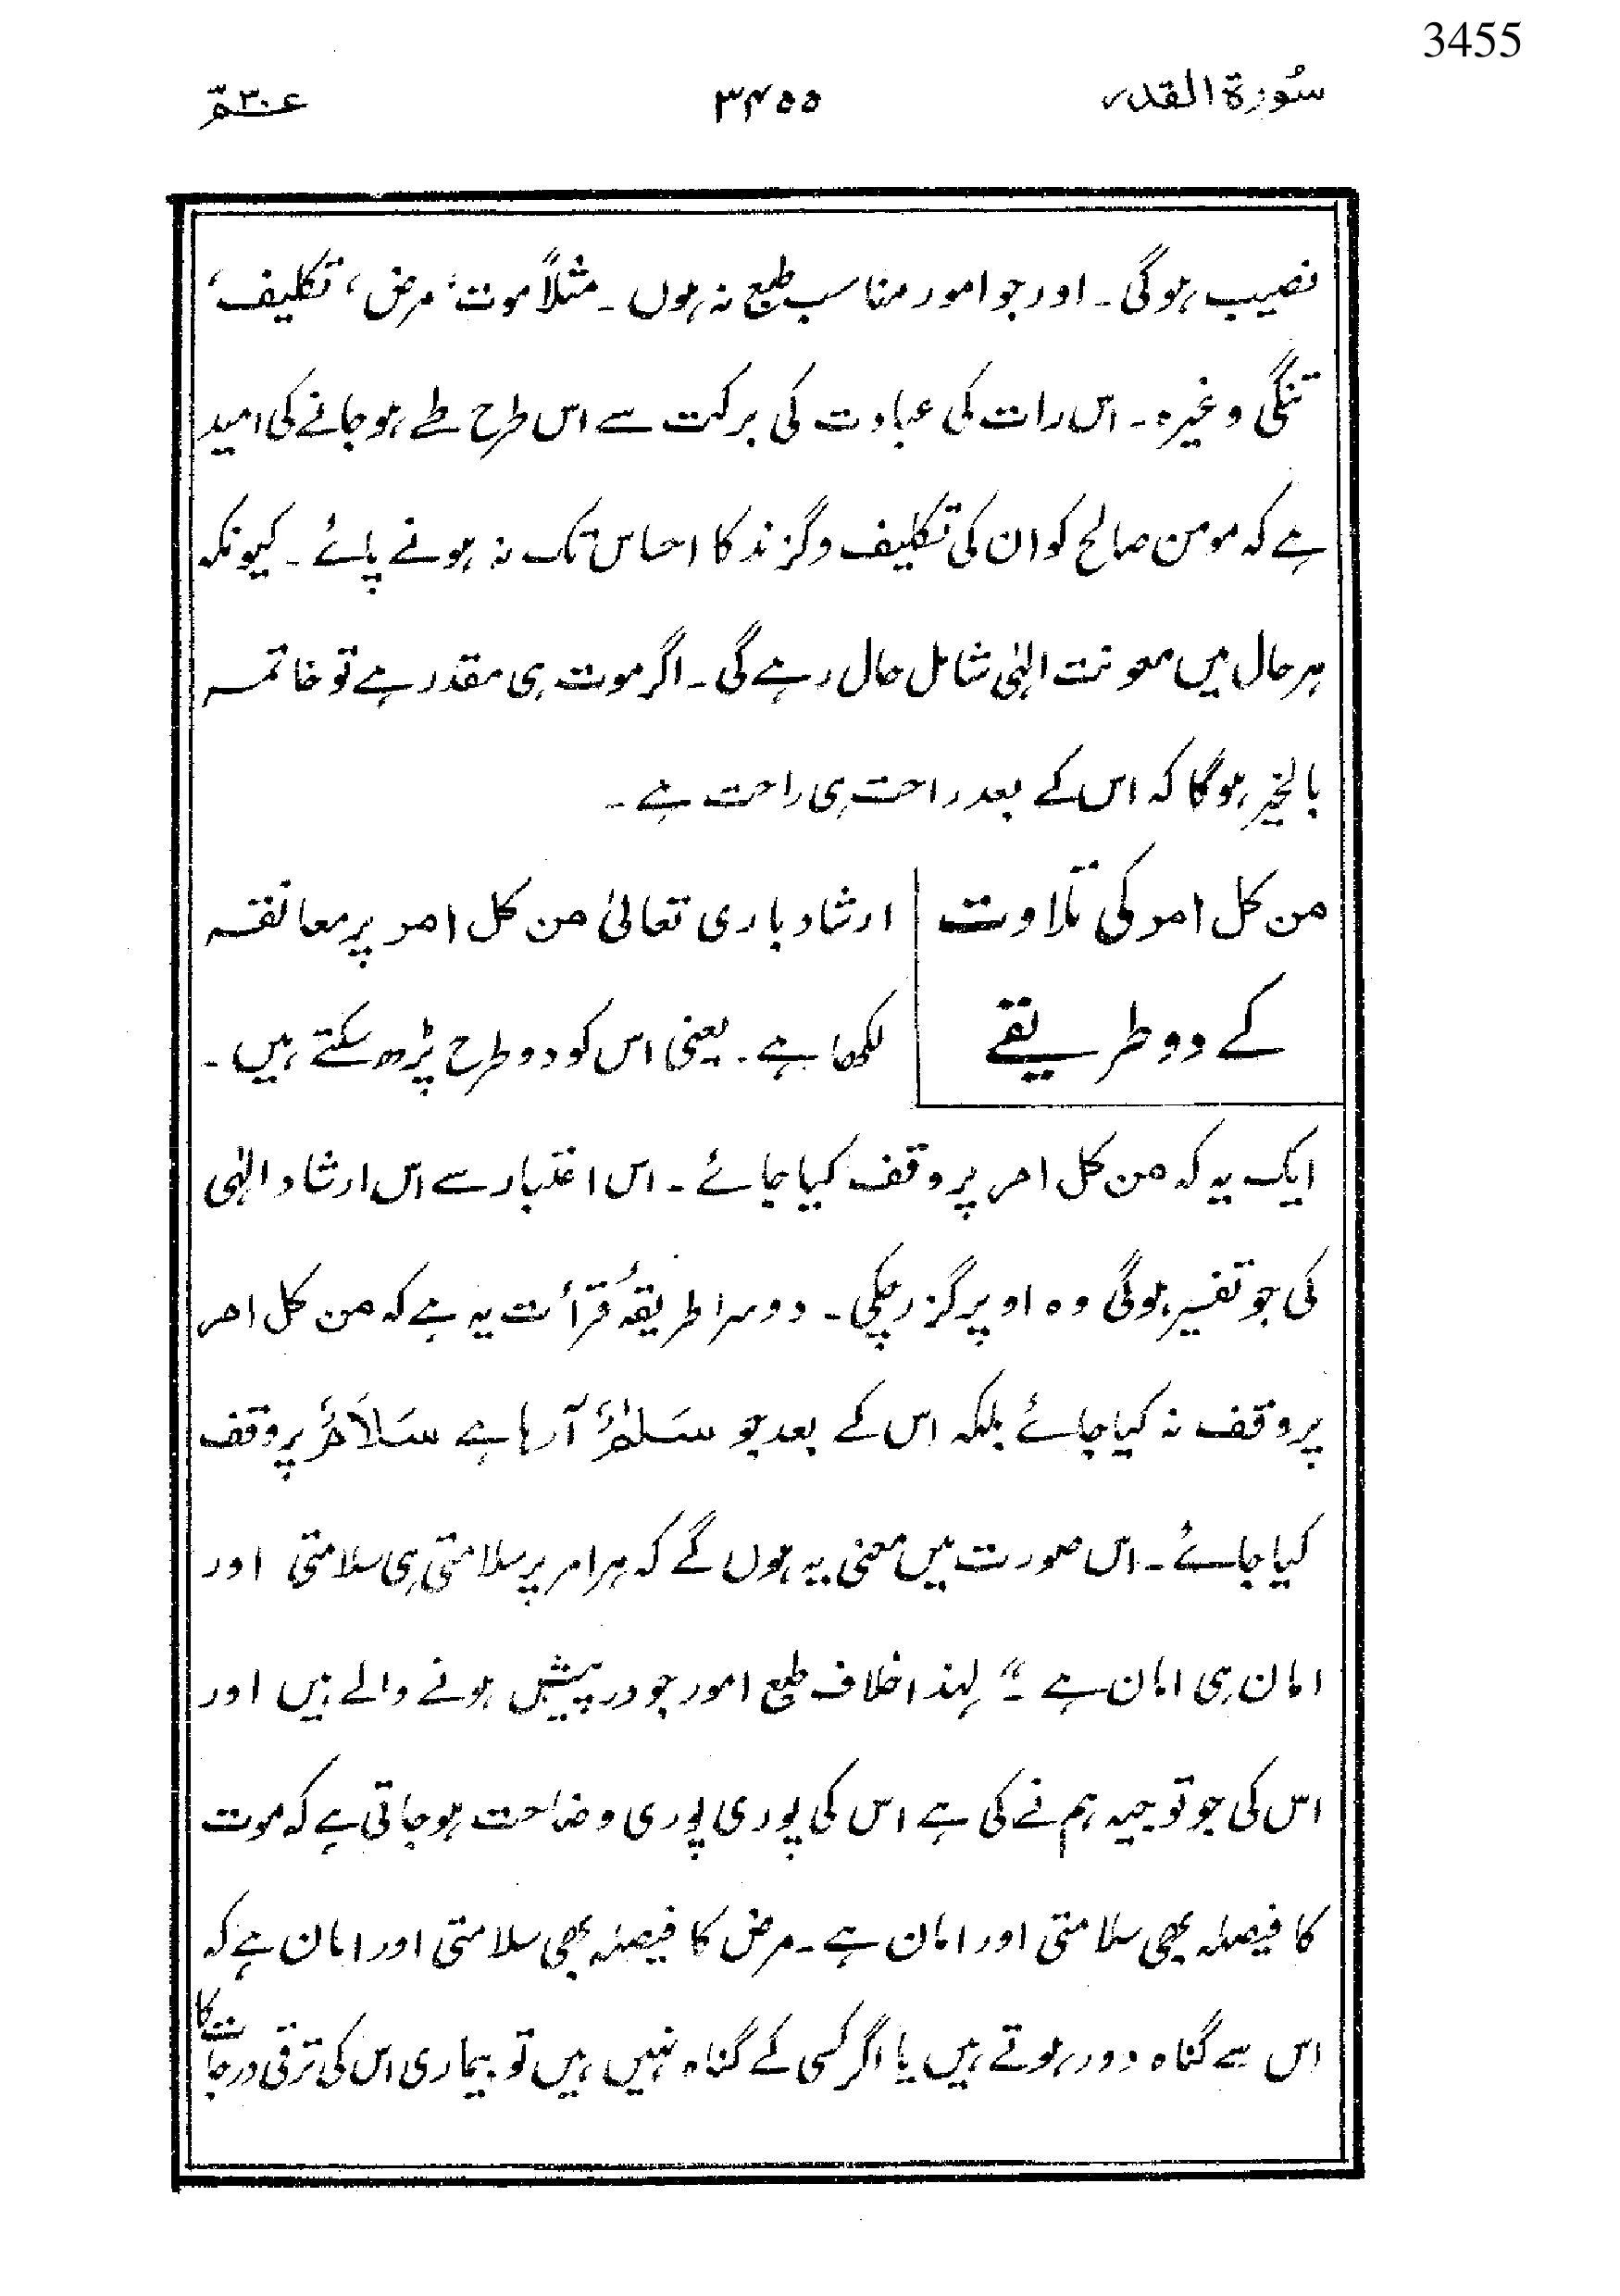 3455
سُورۃ القدر ۳۴۵۵ عم ۳۰
نصیب ہوگی۔ اور جو امور مناسب طبع نہ ہوں۔ مثلاً موت، مرض، تکلیف،
تنگی وغیرہ۔ اس رات کی عبادت کی برکت سے اس طرح طے ہو جانے کی امید
ہے کہ مومن صالح کو ان کی تکلیف وگزند کا احساس تک نہ ہونے پائے۔ کیونکہ
ہر حال میں معونت الٰہی شامل حال رہے گی۔ اگر موت ہی مقدر ہے تو خاتمہ
بالخیر ہوگا کہ اس کے بعد راحت ہی راحت ہے۔
من کل امر کی تلاوت
کے دو طریقے
ارشاد باری تعالیٰ من کل امر پر معانقہ
لکھا ہے۔ یعنی اس کو دو طرح پڑھ سکتے ہیں۔
ایک یہ کہ من کل امر پر وقف کیا جائے۔ اس اعتبار سے اس ارشاد الٰہی
کی جو تفسیر ہوگی وہ اوپر گزر چکی۔ دوسرا طریقۂ قرأت یہ ہے کہ من کل امر
پر وقف نہ کیا جائے بلکہ اس کے بعد جو سَلٰمٌ آرہا ہے سَلَامٌ پر وقف
کیا جائے۔ اس صورت میں معنی یہ ہوں گے کہ ہر امر پر سلامتی ہی سلامتی اور
امان ہی امان ہے۔" لہٰذا خلاف طبع امور جو درپیش ہونے والے ہیں اور
اس کی جو توجیہ ہم نے کی ہے اس کی پوری پوری وضاحت ہو جاتی ہے کہ موت
کا فیصلہ بھی سلامتی اور امان ہے۔ مرض کا فیصلہ بھی سلامتی اور امان ہے کہ
اس سے گناہ دور ہوتے ہیں یا اگر کسی کے گناہ نہیں ہیں تو بیماری اس کی ترقی درجات کا